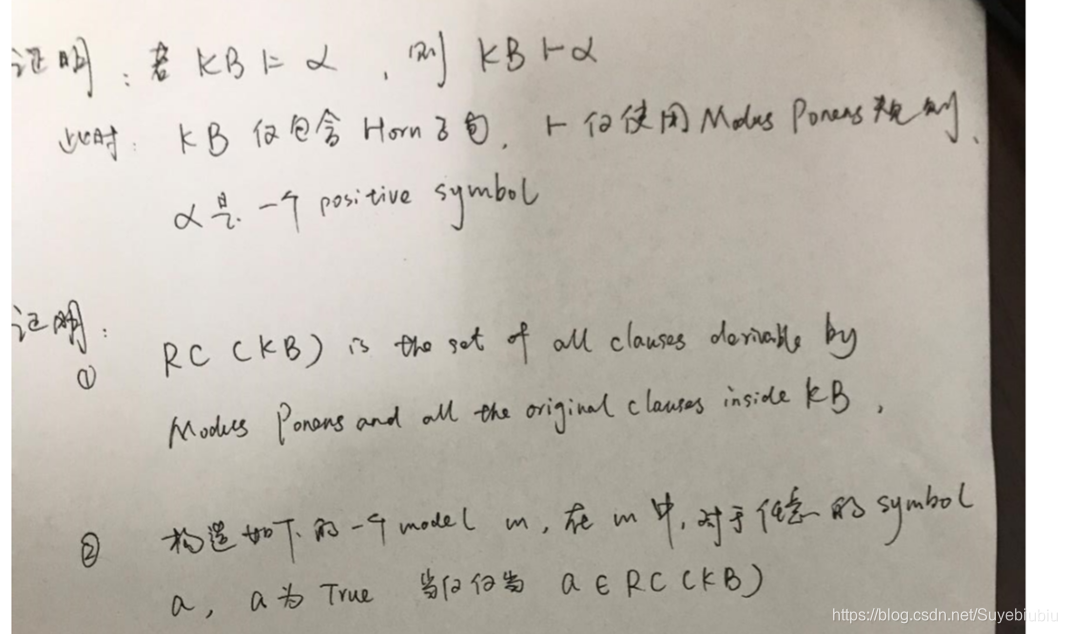 证明：若 KB ⊨ α ，则 KB ⊢ α
此时：KB 仅包含 Horn 子句，⊢ 仅使用 Modus Ponens 规则、
α 是一个 positive symbol
证明：
① RC (KB) is the set of all clauses derivable by
Modus Ponens and all the original clauses inside KB，
② 构造如下的一个 model m，在 m 中，对于任意的 symbol
a，a 为 True 当仅仅当 a ∈ RC (KB)
https://blog.csdn.net/Suyebiubiu